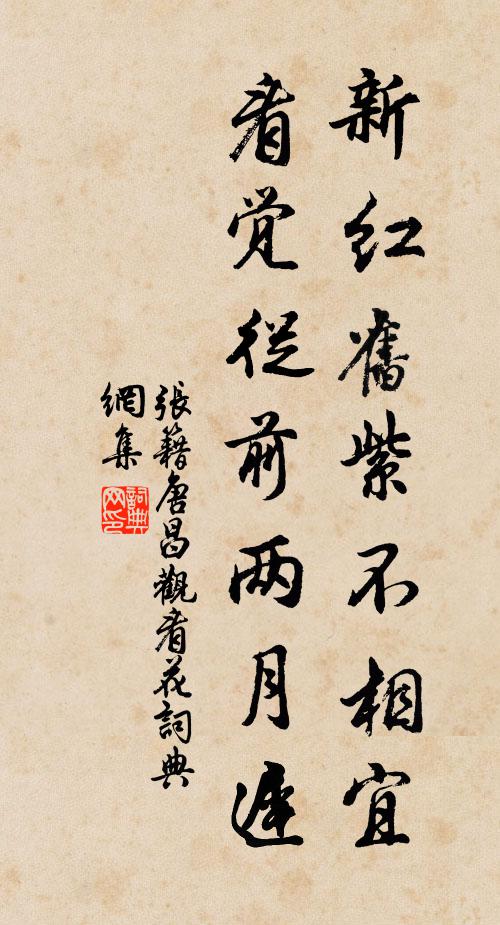 新红舊紫不相宜
看觉從前两月遲
張籍唐昌觀看花詞典
網集
詞典
网印